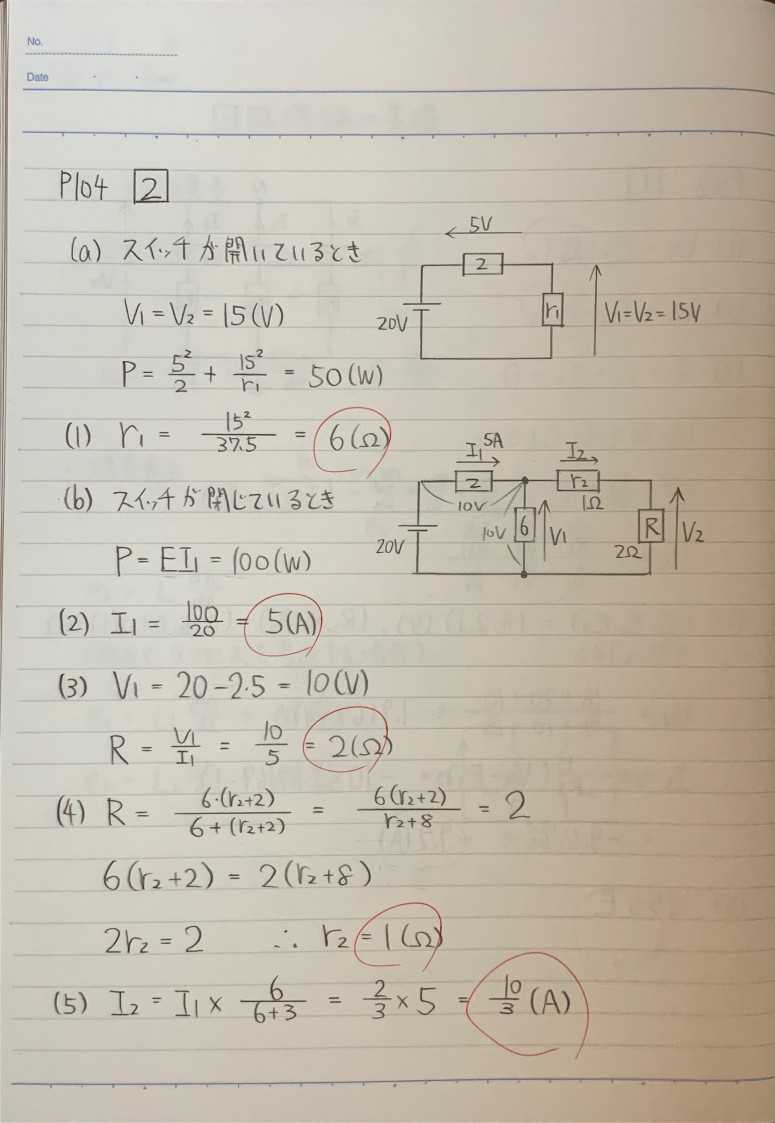 No.
Date
P104 2
(a) スイッチが開いているとき
5V
2
20V
r₁
V₁=V₂=15V
V₁ = V₂ = 15(V)
P = 5²/2 + 15²/r₁ = 50(W)
(1) r₁ = 15²/37.5 = 6(Ω)
(b) スイッチが閉じているとき
I₁ 5A
I₂
2
r₂
1Ω
10V
20V
10V
6
V₁
R
2Ω
V₂
P = EI₁ = 100(W)
(2) I₁ = 100/20 = 5(A)
(3) V₁ = 20-2・5 = 10(V)
R = V₁/I₁ = 10/5 = 2(Ω)
(4) R = 6・(r₂+2)/6+(r₂+2) = 6(r₂+2)/r₂+8 = 2
6(r₂+2) = 2(r₂+8)
2r₂ = 2 ∴ r₂ = 1(Ω)
(5) I₂ = I₁ × 6/6+3 = 2/3 × 5 = 10/3 (A)